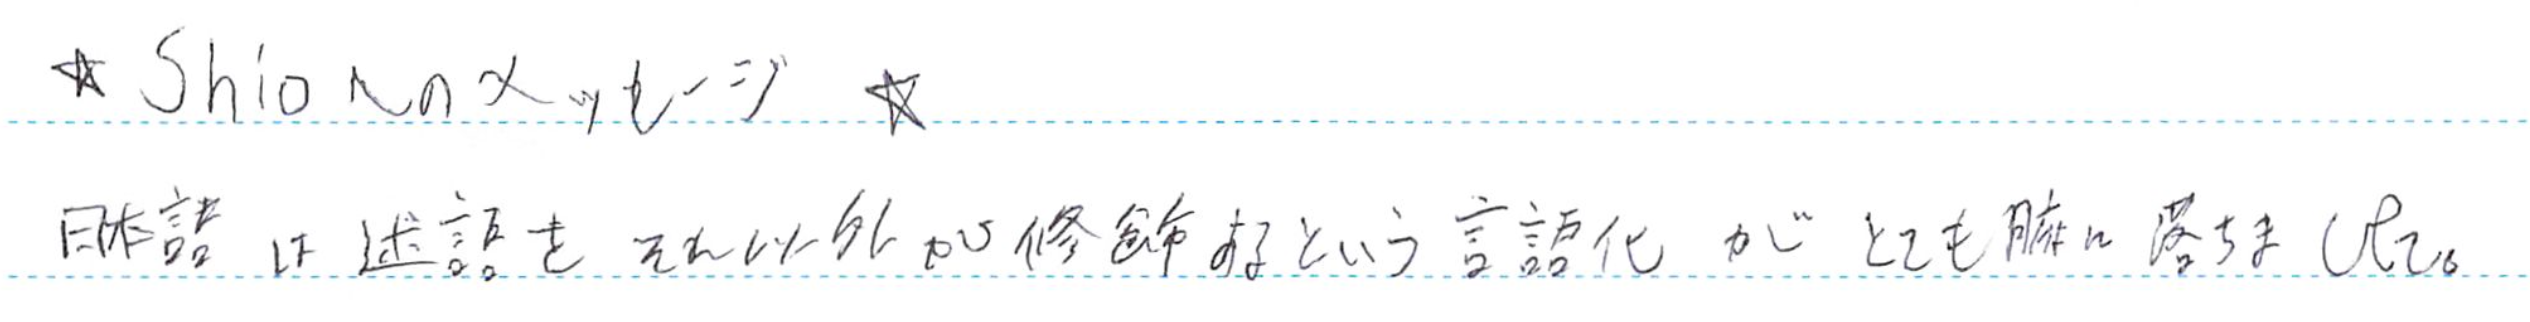 ☆ Shioへのメッセージ ☆
日本語は述語をそれ以外が修飾するという言語化がとても腑に落ちました。